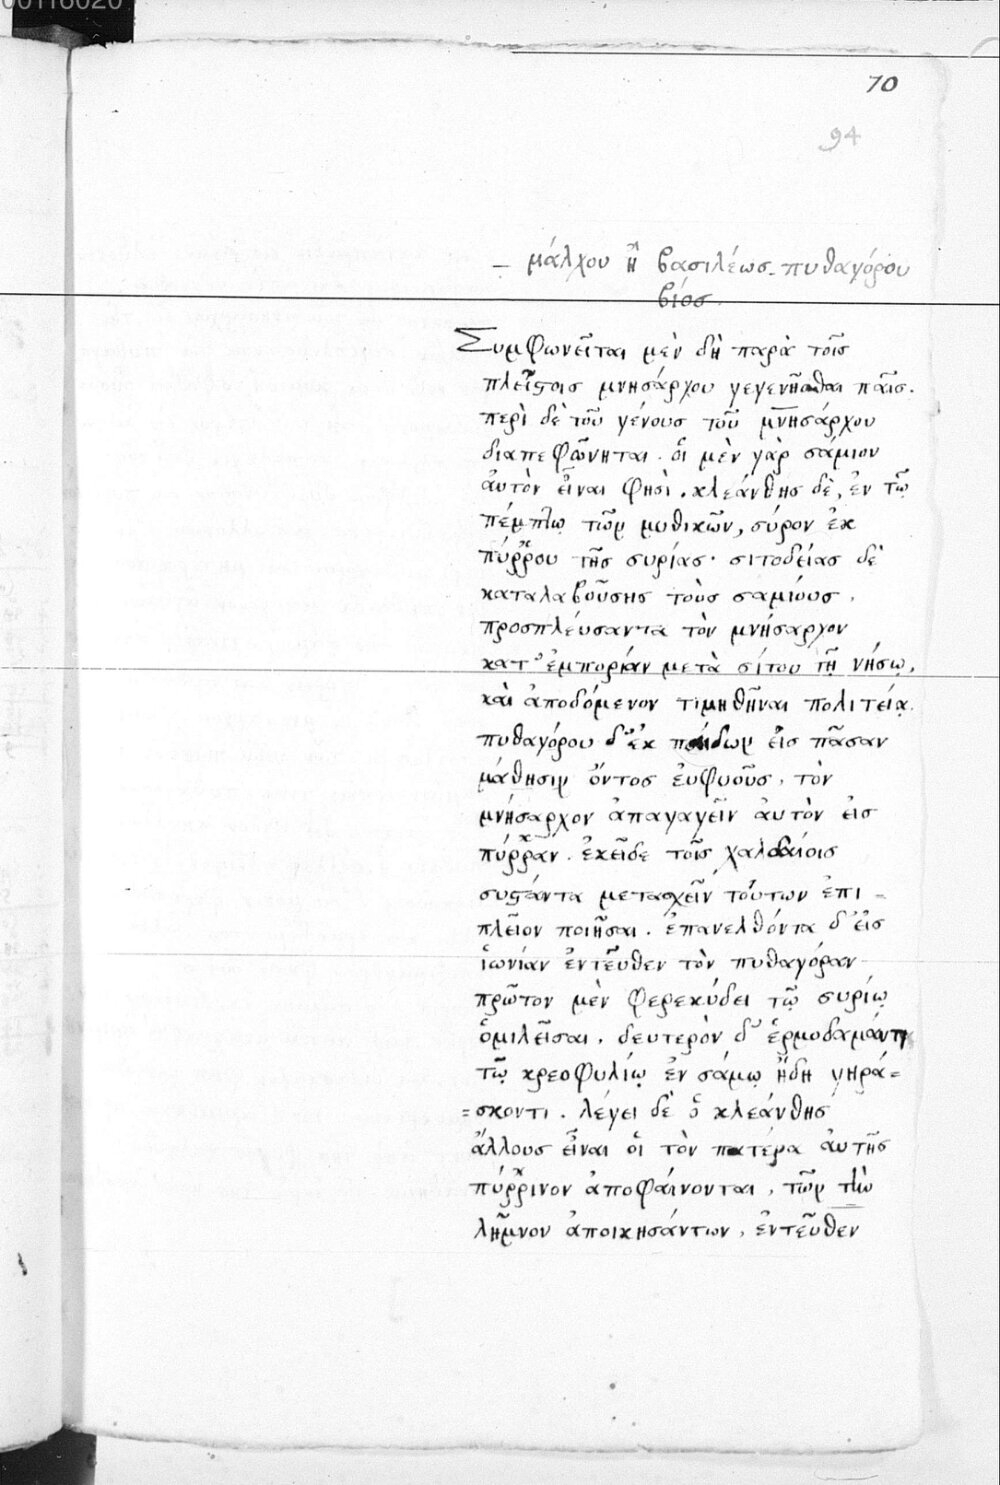 00116020
70
94
_ μάλχου ἢ βασιλέως. πυθαγόρου
βίος.
Συμφωνεῖται μὲν δὴ παρὰ τοῖς
πλείϛοις μνησάρχου γεγενῆσθαι παῖς.
περὶ δὲ τοῦ γένους τοῦ μνησάρχου
διαπεφώνηται. οἱ μὲν γὰρ σάμιον
ἀυτὸν εἶναι φησὶ. κλεάνθης δὲ, ἐν τῶ
πέμπτω τῶν μυθικῶν, σύρον ἐκ
πύῤῥου τῆς συρίας· σιτοδείας δὲ
καταλαβούσης τοὺς σαμίους,
προσπλέυσαντα τὸν μνήσαρχον
κατ' ἐμπορίαν μετὰ σίτου τῇ νήσῳ,
καὶ ἀποδόμενον τιμηθῆναι πολιτείᾳ.
πυθαγόρου δ' ἐκ παίδων εἰς πᾶσαν
μάθησιν ὄντος ἐυφυοῦς, τὸν
μνήσαρχον ἀπαγαγεῖν ἀυτὸν ἐις
πύῤῥαν. ἐκεῖδε τοῖς χαλδαίοις
συϛάντα μετασχεῖν τούτων ἐπι -
πλεῖον ποιῆσαι. ἐπανελθόντα δ' ἐις
ἰωνίαν ἐντεῦθεν τὸν πυθαγόραν
πρῶτον μὲν φερεκύδει τῷ συρίῳ
ὁμιλεῖσαι, δευτερὸν δ' ἑρμοδαμάντι
τῷ κρεοφυλίῳ ἐν σάμῳ ἤδη γηρά=
=σκοντι. λέγει δὲ ὁ κλεάνθης
ἄλλους εἶναι οἱ τὸν πατέρα ἀυτῆς
πύῤῥινον ἀποφαίνονται, τῶν τὴν
λῆμνον ἀποικησάντων, ἐντεῦθεν